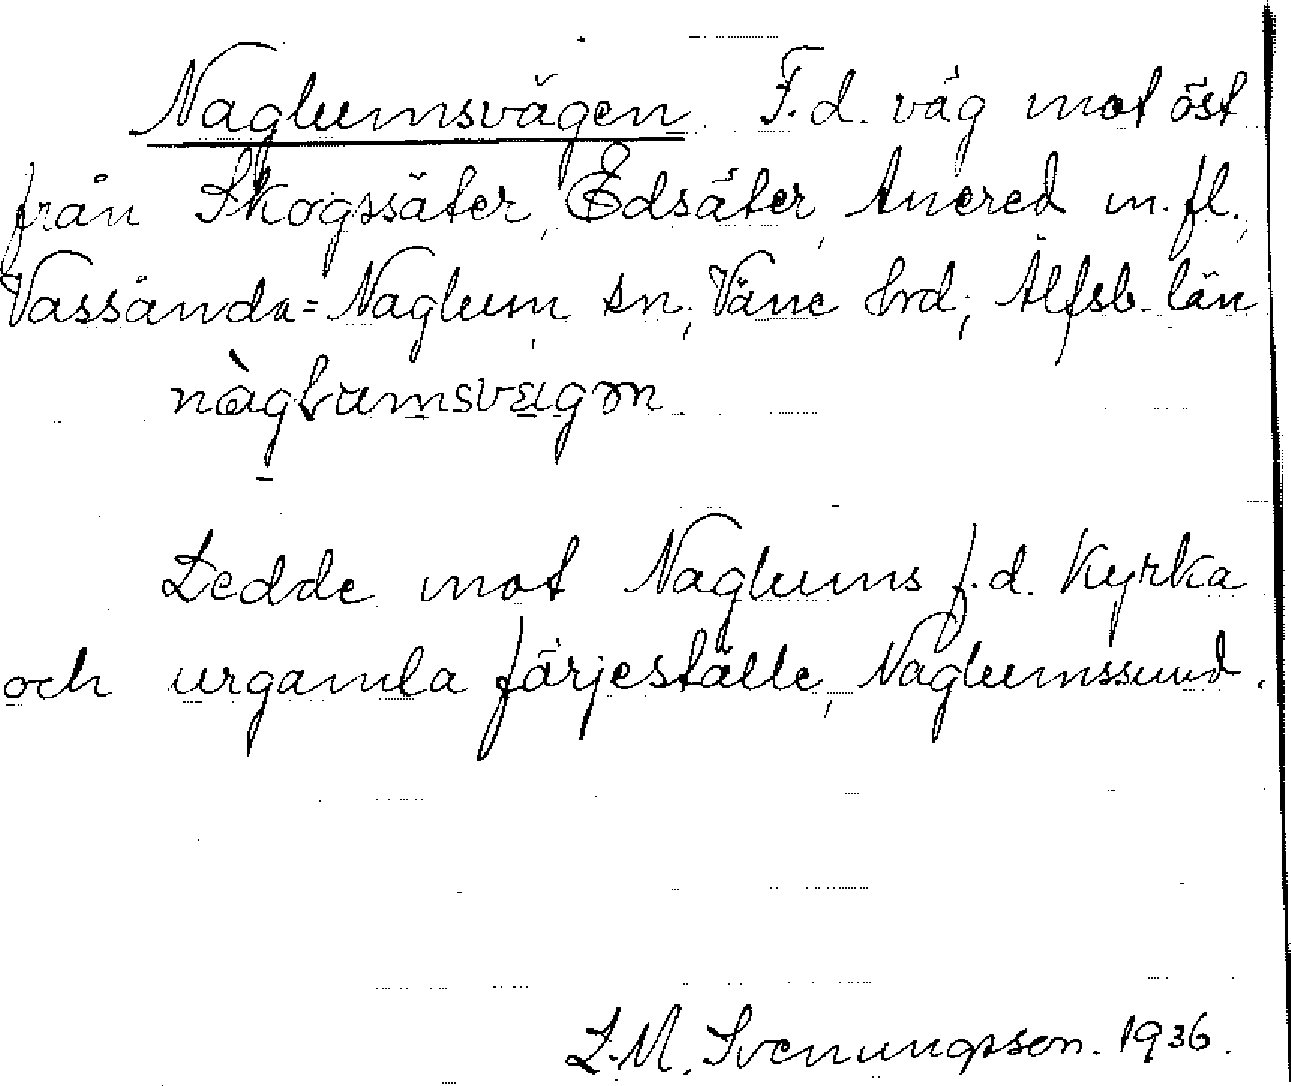 Naglumsvägen. F.d. väg mot öst
från Skogssäter, Edsäter, Anered m.fl.,
Vassända=Naglum sn, Väne hrd, Älfsb. län
nàgɫumsvɛgən
Ledde mot Naglums f.d. Kyrka
och urgamla färjeställe, Naglumssund.
L.M. Svenungsson. 1936.